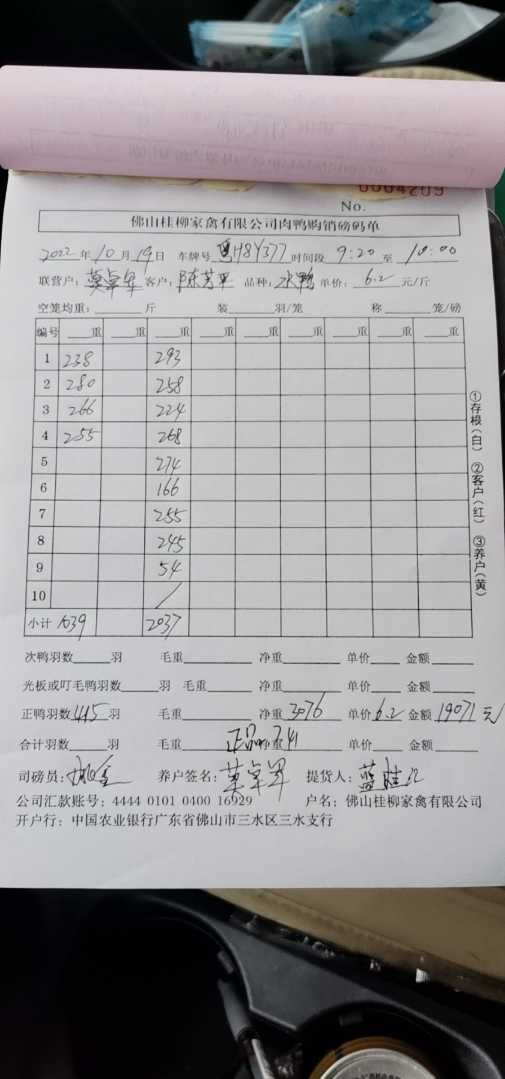 0004209
No.
佛山桂柳家禽有限公司肉鸭购销磅码单
2022年10月19日 车牌号 H8Y377 时间段 9:20 至 10:00
联营户: 莫卓军 客户: 陈芝平 品种: 次鸭 单价: 6.2 元/斤
空笼均重: 斤 装 羽/笼 称 笼/磅
编号 重 重 重 重 重 重 重 重
1 238 293
2 280 258
3 266 224
4 255 268
5 274
6 166
7 255
8 245
9 54
10 /
小计 1039 2037
①存根(白) ②客户(红) ③养户(黄)
次鸭羽数 羽 毛重 净重 单价 金额
光板或叮毛鸭羽数 羽 毛重 净重 单价 金额
正鸭羽数 羽 毛重 净重 3076 单价 6.2 金额 19071元
合计羽数 羽 毛重 正品 净重 单价 金额
司磅员: 养户签名: 莫卓军 提货人: 蓝桂江
公司汇款账号: 4444 0101 0400 16929 户名: 佛山桂柳家禽有限公司
开户行: 中国农业银行广东省佛山市三水区三水支行